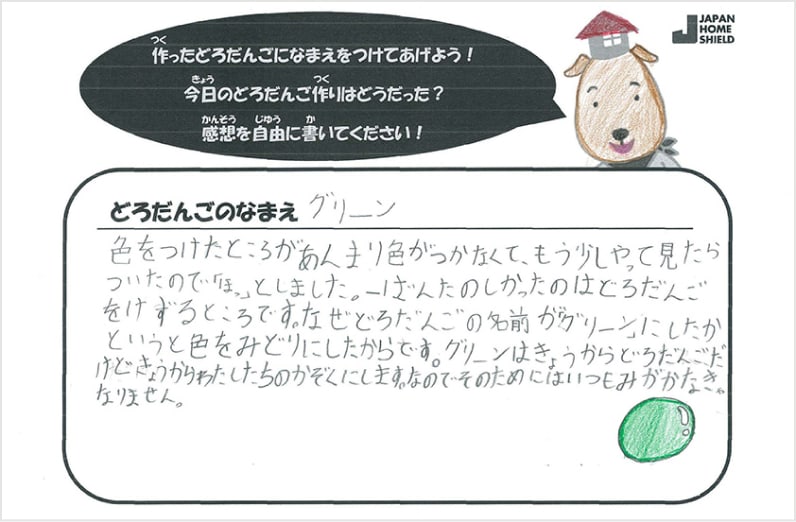 作ったどろだんごになまえをつけてあげよう！
今日のどろだんご作りはどうだった？
感想を自由に書いてください！
JAPAN
HOME
SHIELD
どろだんごのなまえ グリーン
色をつけたところがあんまり色がつかなくて、もう少しやって見たら
ついたので「ほっ」としました。一ばんたのしかったのはどろだんご
をけずるところです。なぜどろだんごの名前が「グリーン」にしたか
というと色をみどりにしたからです。グリーンはきょうからどろだんごだ
けど、きょうからわたしたちのかぞくにします。なのでそのためにはいつもみがかなきゃ
なりません。